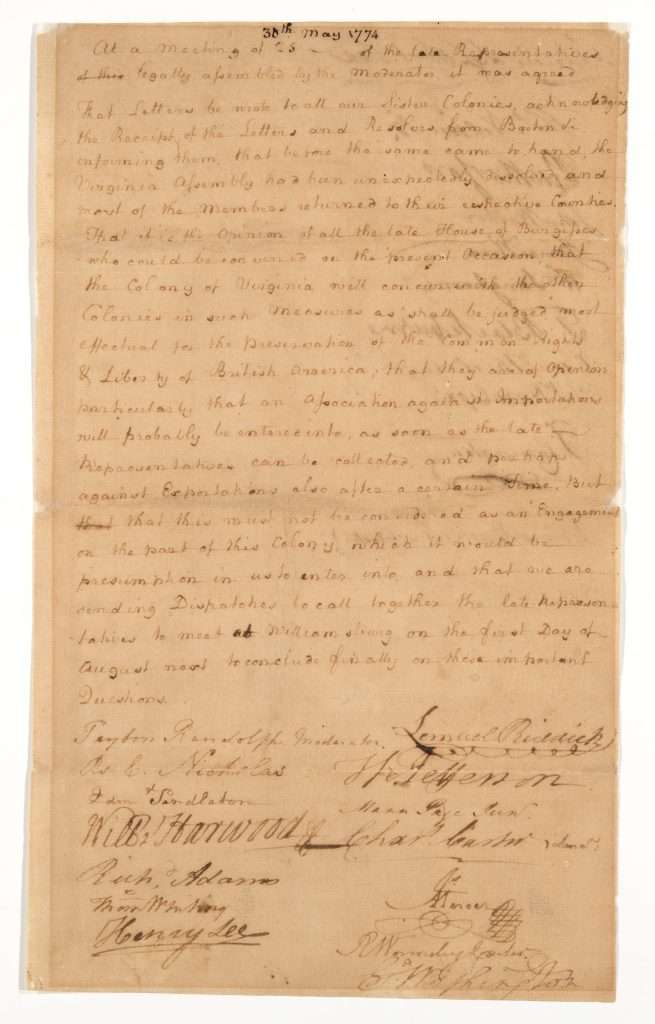 30th May 1774
At a Meeting of 25 of the late Representatives
legally assembled by the Moderator it was agreed
That Letters be wrote to all our Sister Colonies, acknoledging
the Receipt of the Letters and Resolves from Boston &
informing them, that before the same came to hand, the
Virginia Assembly had been unexpectedly dissolved and
most of the Members returned to their respective Counties.
That it is the Opinion of all the late House of Burgesses
who could be convened on the present Occasion that
the Colony of Virginia will concur with the other
Colonies in such Measures as shall be judged most
effectual for the preservation of the Common Rights
& Liberty of British America; that they are of Opinion
particularly that an Association against Importations
will probably be entered into, as soon as the late
Representatives can be collected, and perhaps
against Exportations also after a certain Time. But
that that this must not be considered as an Engagement
on the part of this Colony, which it would be
presumption in us to enter into, and that we are
sending Dispatches to call together the late Represen
tatives to meet at Williamsburg on the first Day of
August next to conclude finally on these important
Questions.
Peyton Randolph Moderator. Lemuel Riddick
Ro. C. Nicholas Th Jefferson
Edmd Pendleton Mann Page Junr.
Will Harwood Chas. Carter
Richd. Adams
Thom Whiting Js Mercer
Henry Lee R Wormeley Carter
Go Washington